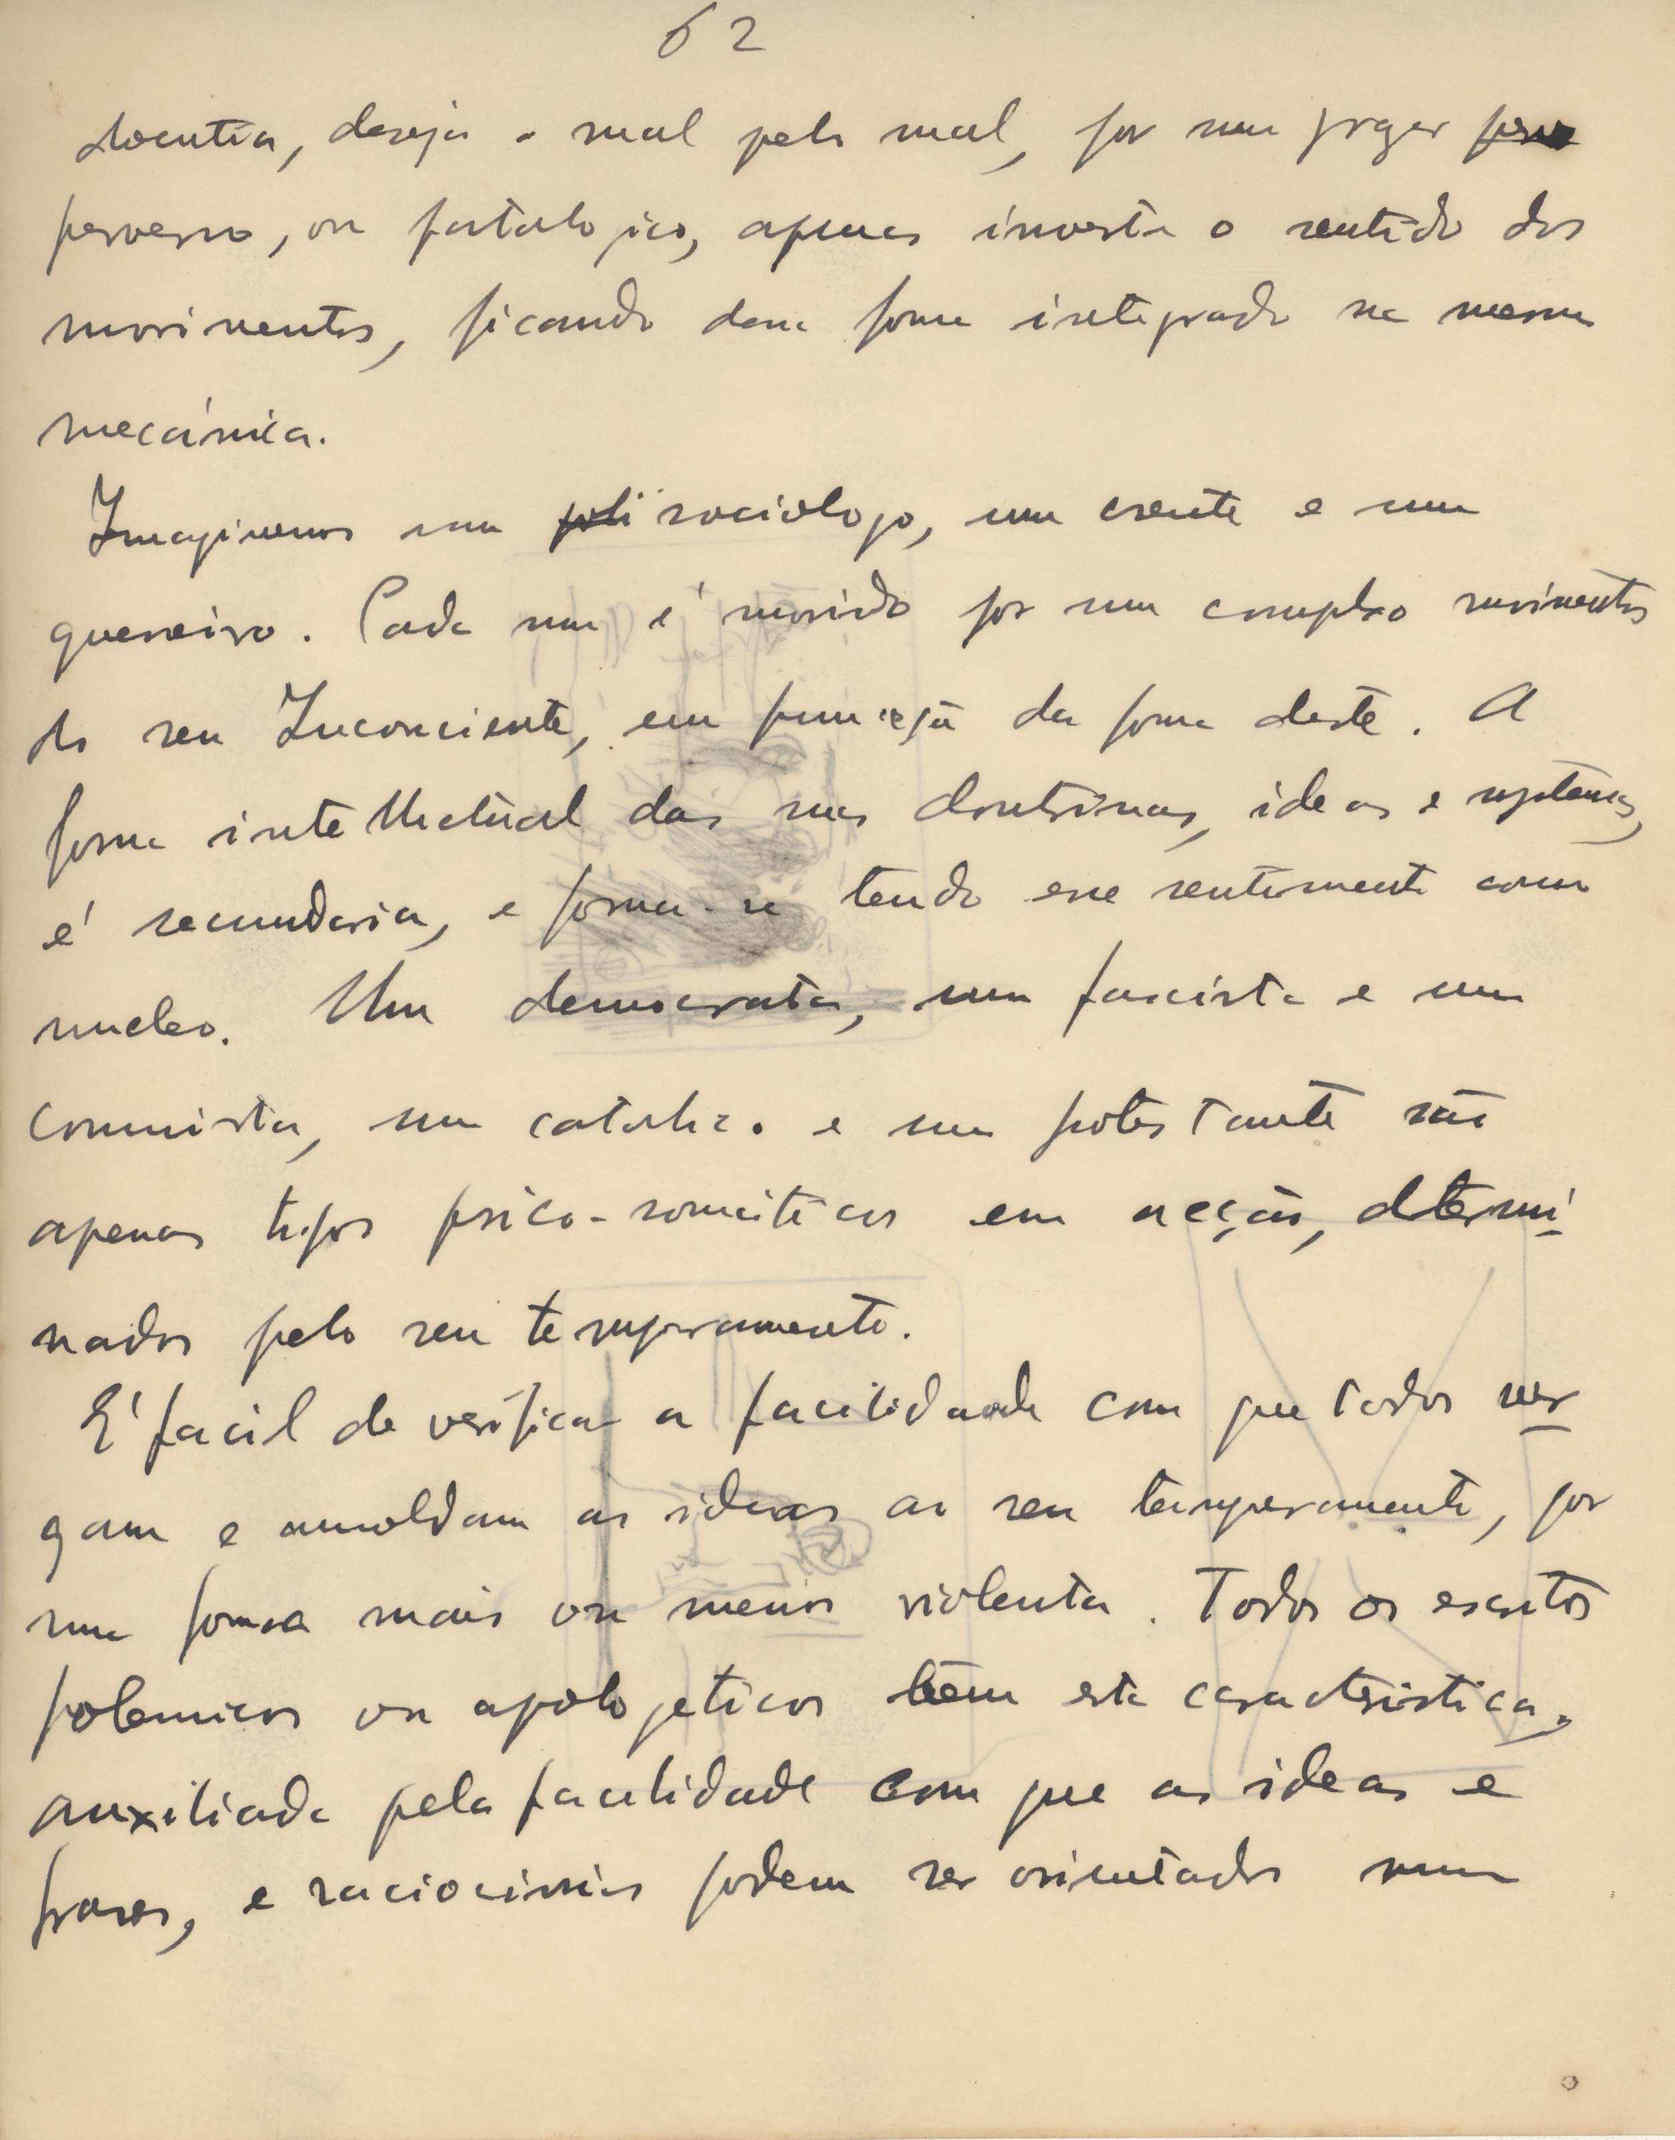 62
doentia, deseja o mal pelo mal, por um prazer perv
perverso, ou patologico, apenas inverte o sentido dos
movimentos, ficando dessa forma integrado na mesma
mecánica.
Imaginemos um poli sociologo, um crente e um
guerreiro. Cada um é movido por um complexo movimentos
do seu Inconciente, em funcção da forma deste. A
forma intellectual das suas doutrinas, ideas e systemas,
é secundaria, e forma-se tendo esse sentimento como
nucleo. Um democrata, um fascista e um
comunista, um catolico e um protestante são
apenas tipos psico-somáticos em acção, determi
nados pelo seu temperamento.
É facil de verificar a facilidade com que todos ver
gam e amoldam as ideas ao seu temperamento, por
uma forma mais ou menos violenta. Todos os escritos
polemicos ou apologeticos têem esta caracteristica,
auxiliada pela facilidade com que as ideas e
frases, e raciocinios podem ser orientados numa